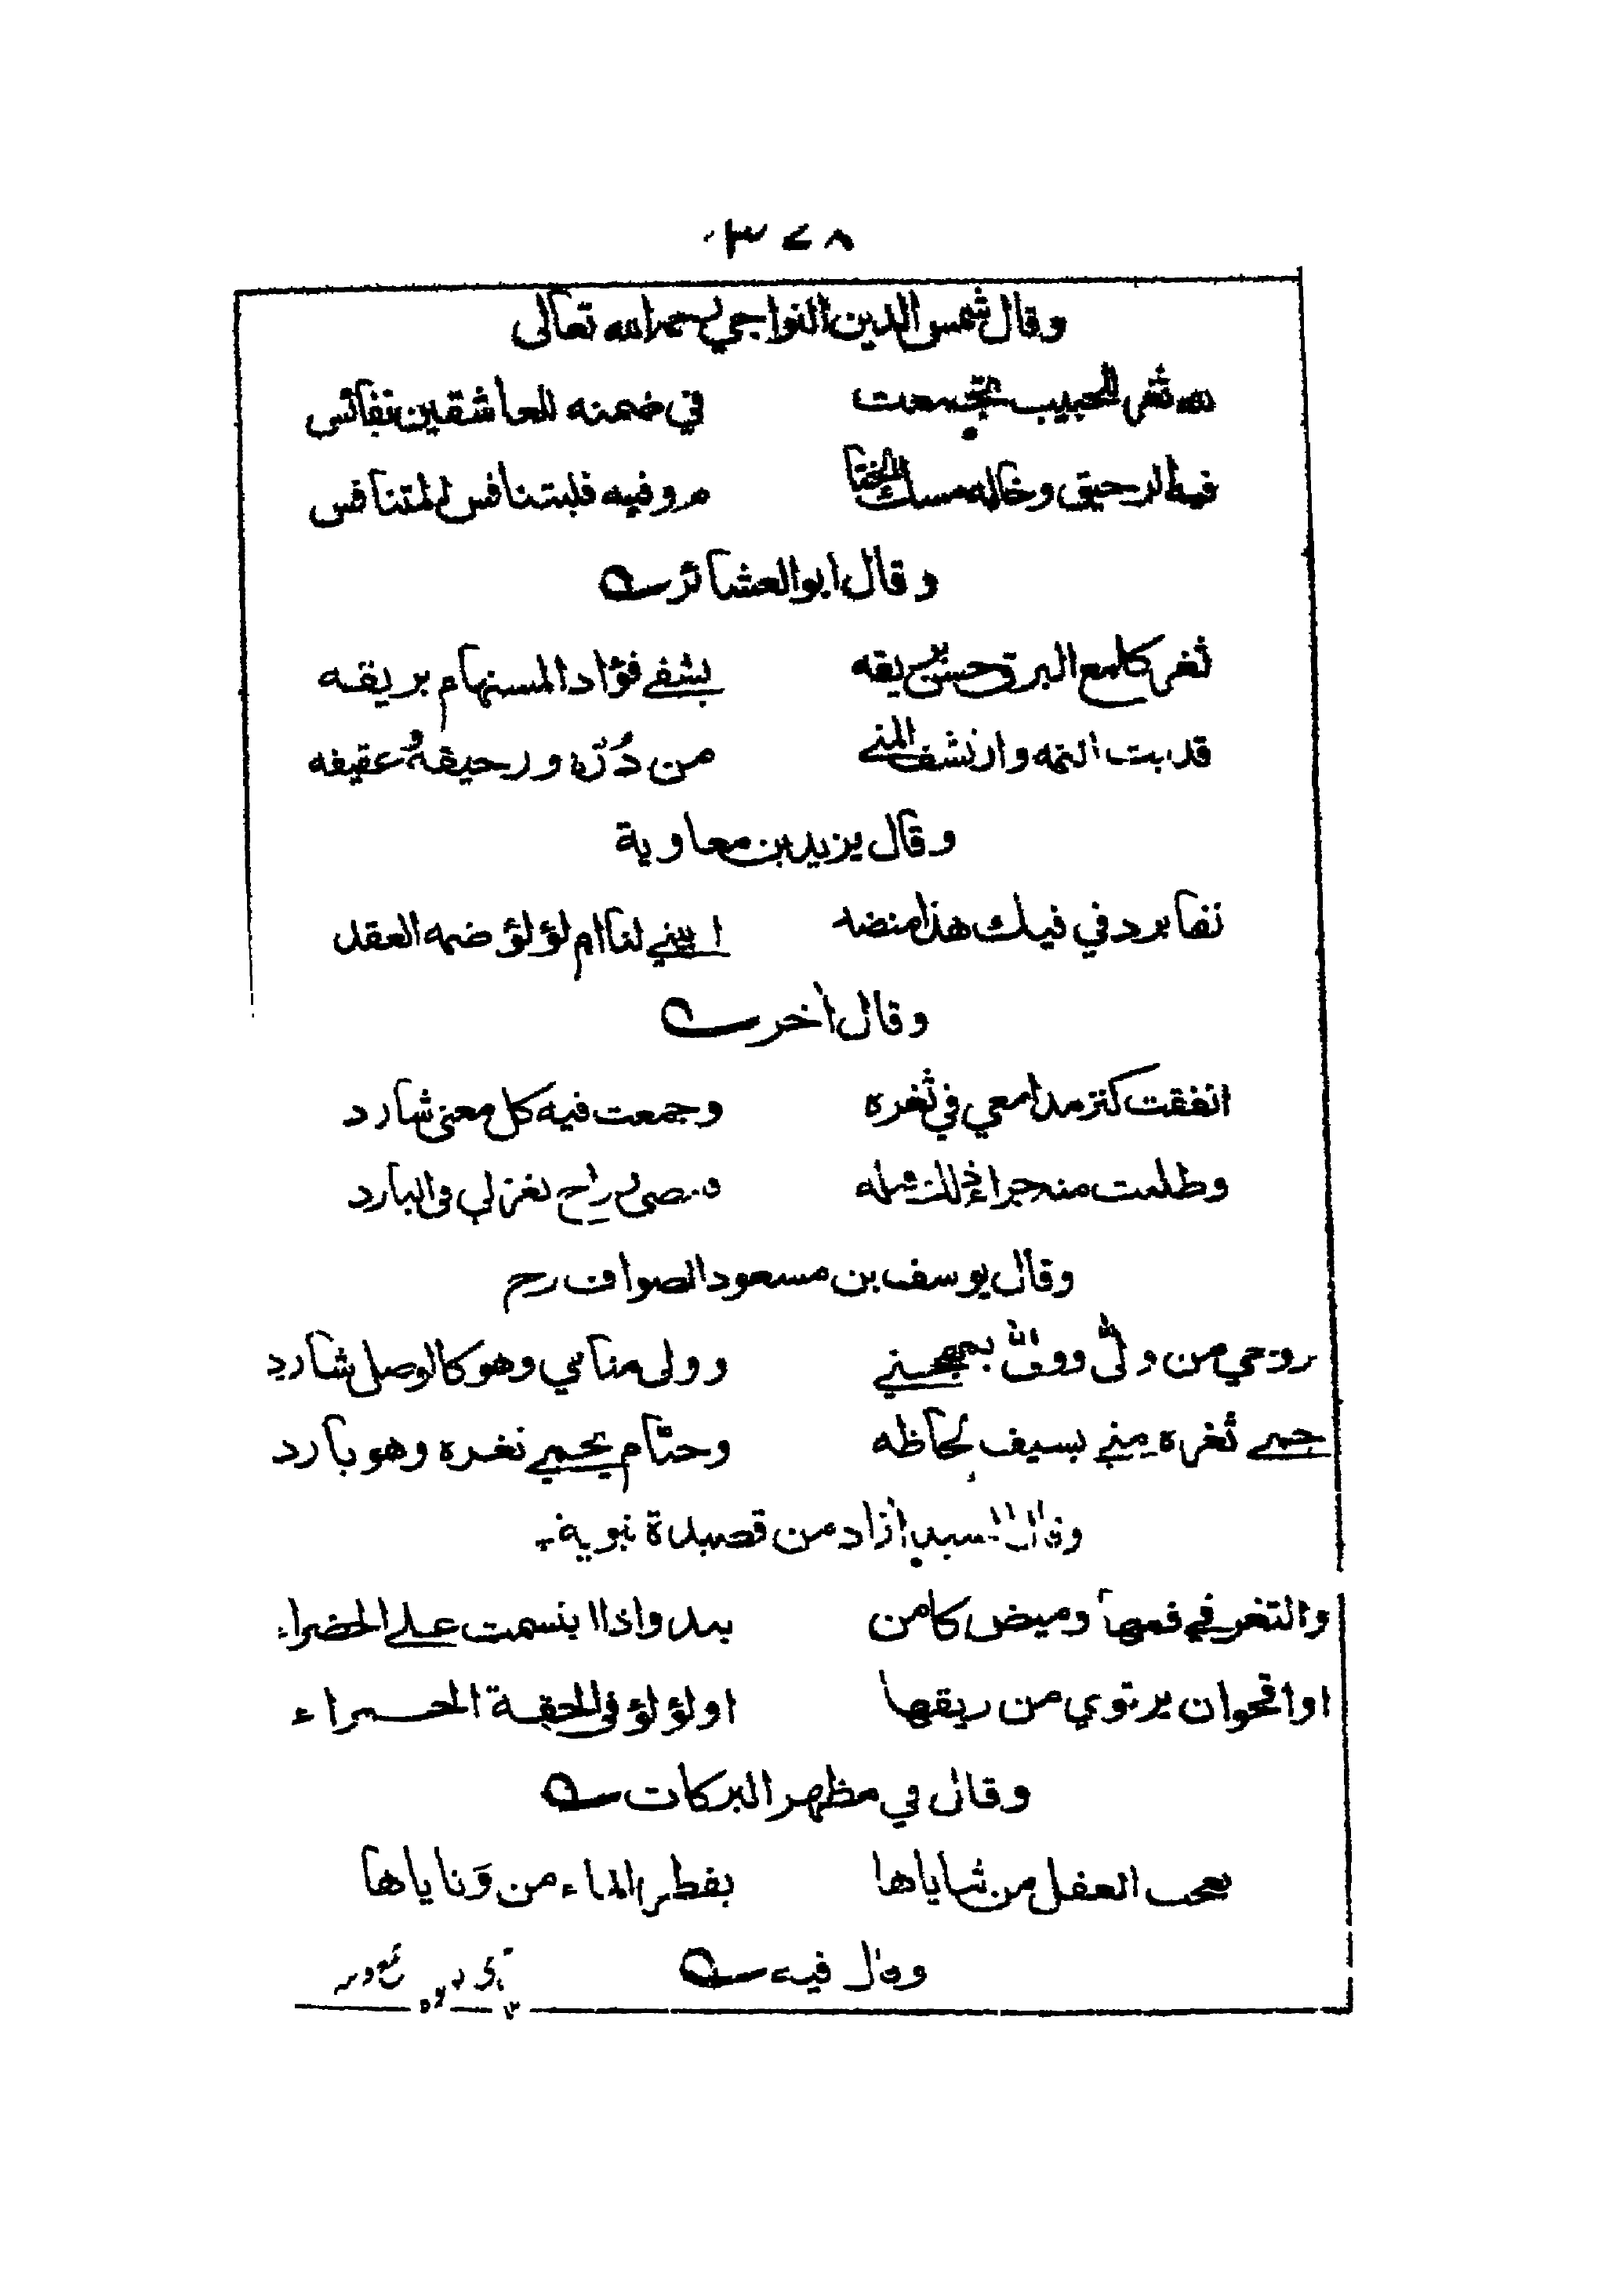 ٣٧٨
وقال شمس الدين النواجي رحمه الله تعالى
لله ثغر للحبيب تجمعت في ضمنه للعاشقين نفائس
فيه الرحيق وخاله مسك الختا م وفيه فليتنافس المتنافس
وقال ابو العشائر
ثغر كلمع البرق حسن بريقه يشفي فؤاد المستهام بريقه
قد بت الثمه وارتشف المنى من دُرّه ورحيقه وعقيقه
وقال يزيد بن معاوية
نقا برد في فيك هذا منضد ابيني لنا ام لؤلؤ ضمه العقد
وقال اخر
انفقت كنز مدامعي في ثغره وجمعت فيه كل معنى شارد
وطلبت منه جزاء ذلك قبله راح تغزلي في البارد
وقال يوسف بن مسعود الصواف رح
روحي من ولّى وولّى بمهجتي وولى منامي وهو كالوصل شارد
حمى ثغره مني بسيف لحاظه وحتام يحمي ثغره وهو بارد
وقال السيد ازاد من قصيدة نبوية
والثغر في فمها وميض كامن يبدو اذا ابتسمت على الخضراء
او اقحوان يرتوي من ريقها او لؤلؤ في الحقة الحمراء
وقال في مظهر البركات
العقل من ثناياها بقطر الماء من ناياها
وقال فيه